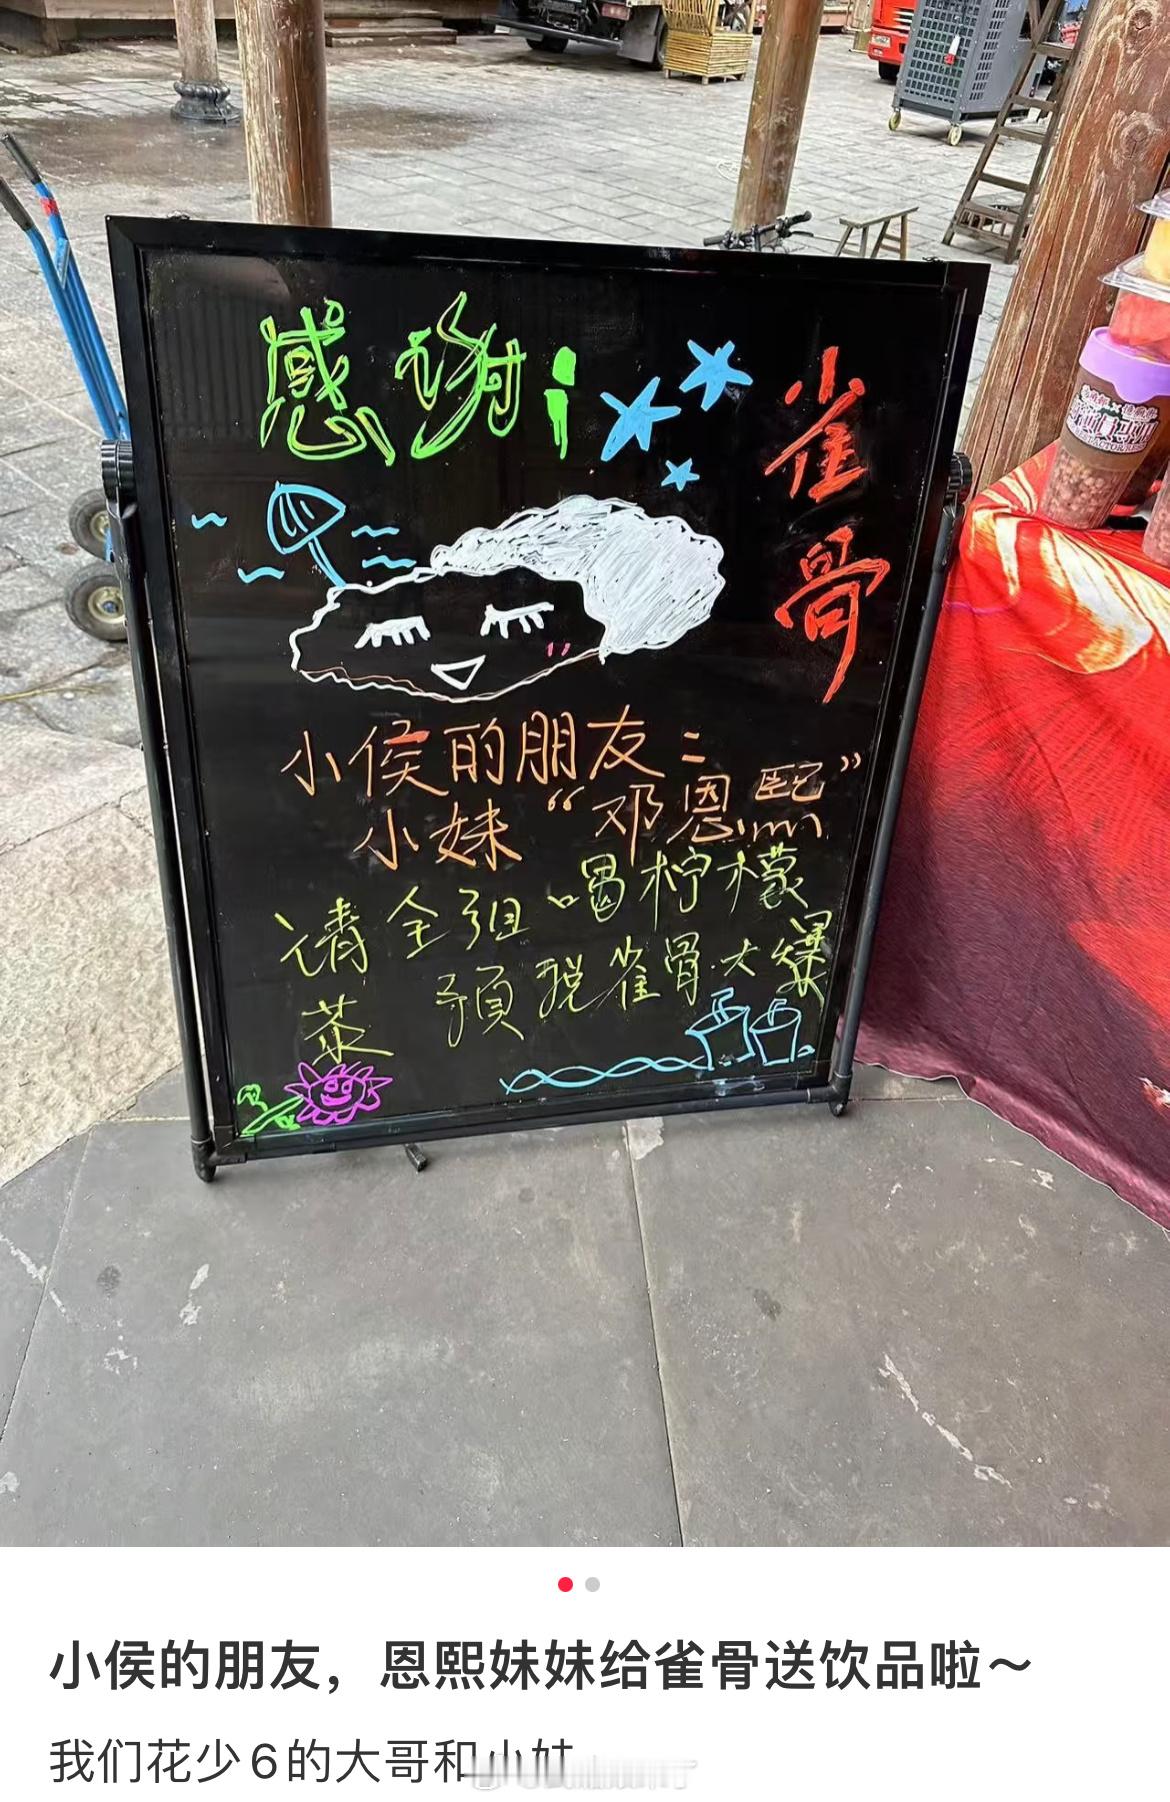 感谢:
雀骨
小侯的朋友:
小妹“邓恩熙”
请全组喝柠檬
茶
预祝雀骨大爆
小侯的朋友，恩熙妹妹给雀骨送饮品啦～
我们花少6的大哥和小妹